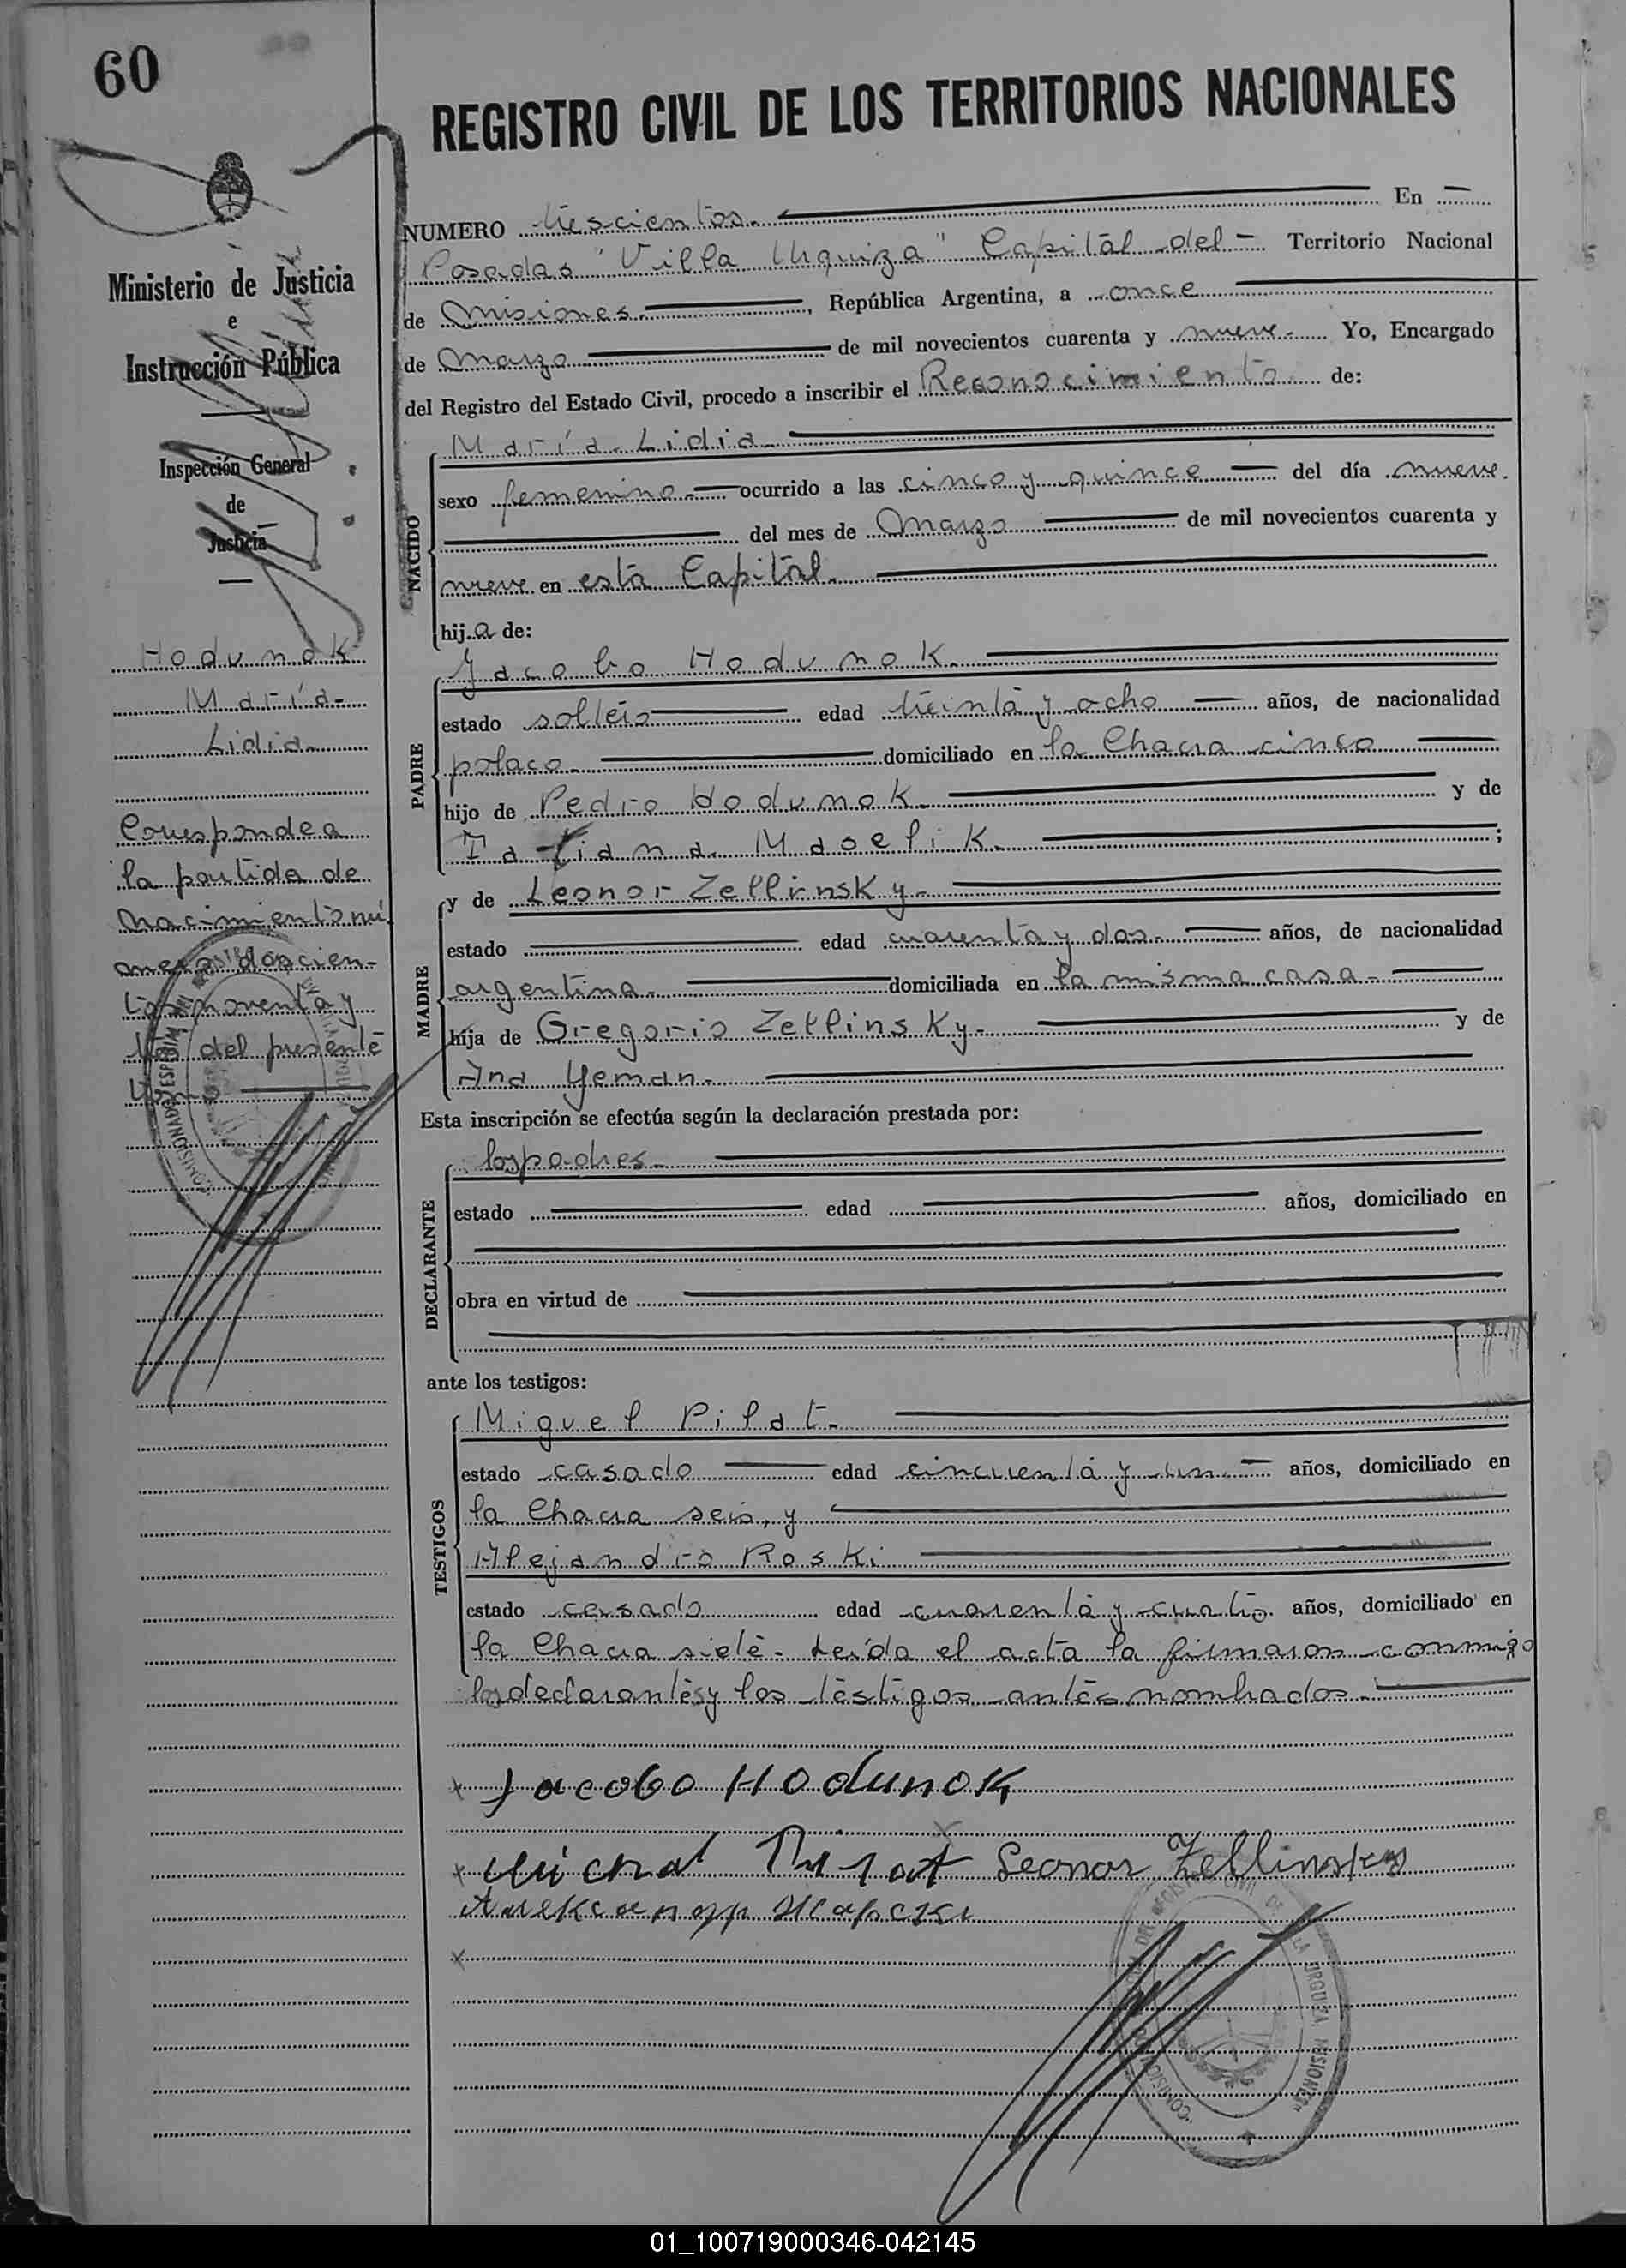 60
REGISTRO CIVIL DE LOS TERRITORIOS NACIONALES
Ministerio de Justicia
e
Instrucción Pública
Inspección General
de
Justicia
Hodunok
María
Lidia
Corresponde a
la partida de
nacimiento nú
mero doscien-
tos noventa y
del presente
NUMERO trescientos. En
Posadas "Villa Urquiza" Capital del Territorio Nacional
de Misiones. , República Argentina, a once
de Marzo de mil novecientos cuarenta y nueve. Yo, Encargado
del Registro del Estado Civil, procedo a inscribir el Reconocimiento de:
María Lidia
NACIDO
sexo femenino. ocurrido a las cinco y quince del día nueve.
del mes de Marzo de mil novecientos cuarenta y
nueve en esta Capital.
hija de:
PADRE
Jacobo Hodunok.
estado soltero edad treinta y ocho años, de nacionalidad
polaco. domiciliado en la Chacra cinco
hijo de Pedro Hodunok. y de
Tatiana Maselik. ;
MADRE
y de Leonor Zellinsky.
estado edad cuarenta y dos. años, de nacionalidad
argentina. domiciliada en la misma casa.
hija de Gregorio Zellinsky. y de
Ana Yeman.
Esta inscripción se efectúa según la declaración prestada por:
DECLARANTE
los padres.
estado edad años, domiciliado en
obra en virtud de
ante los testigos:
TESTIGOS
Miguel Pilat.
estado casado edad cincuenta y un años, domiciliado en
la Chacra seis, y
Alejandro Roski
estado casado edad cuarenta y cuatro. años, domiciliado en
la Chacra siete. Leída el acta la firmaron conmigo
los declarantes y los testigos antes nombrados.
x Jacobo Hodunok
x Leonor Zellinsky
x
01_100719000346-042145